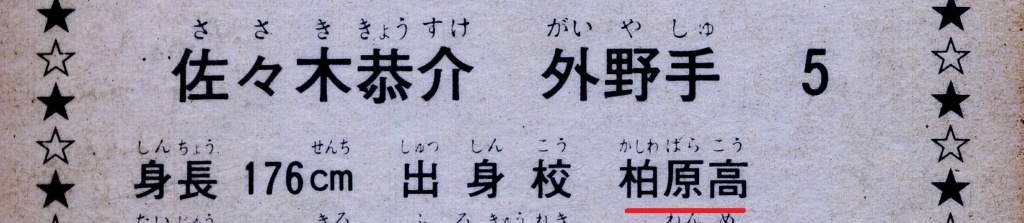 さ さ き きょう すけ がい や しゅ
佐々木恭介 外野手 5
しんちょう せんち しゅっ しん こう かしわ ばら こう
身長 176cm 出身校 柏原高